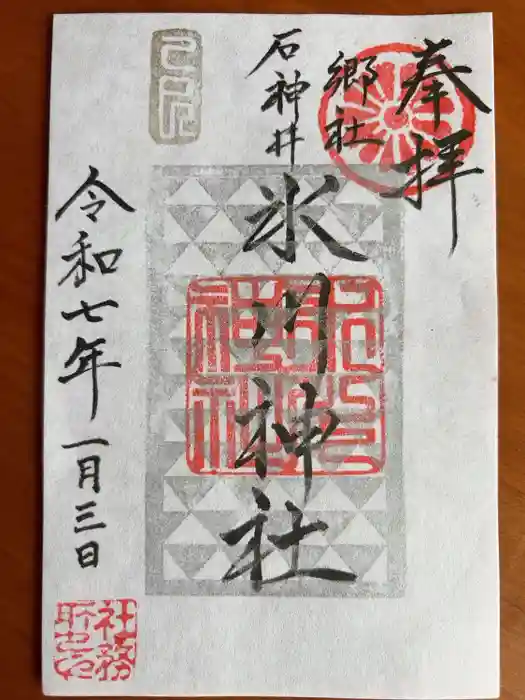 奉拝
郷社
石神井
氷川神社
令和七年一月三日
己巳
社務所之印